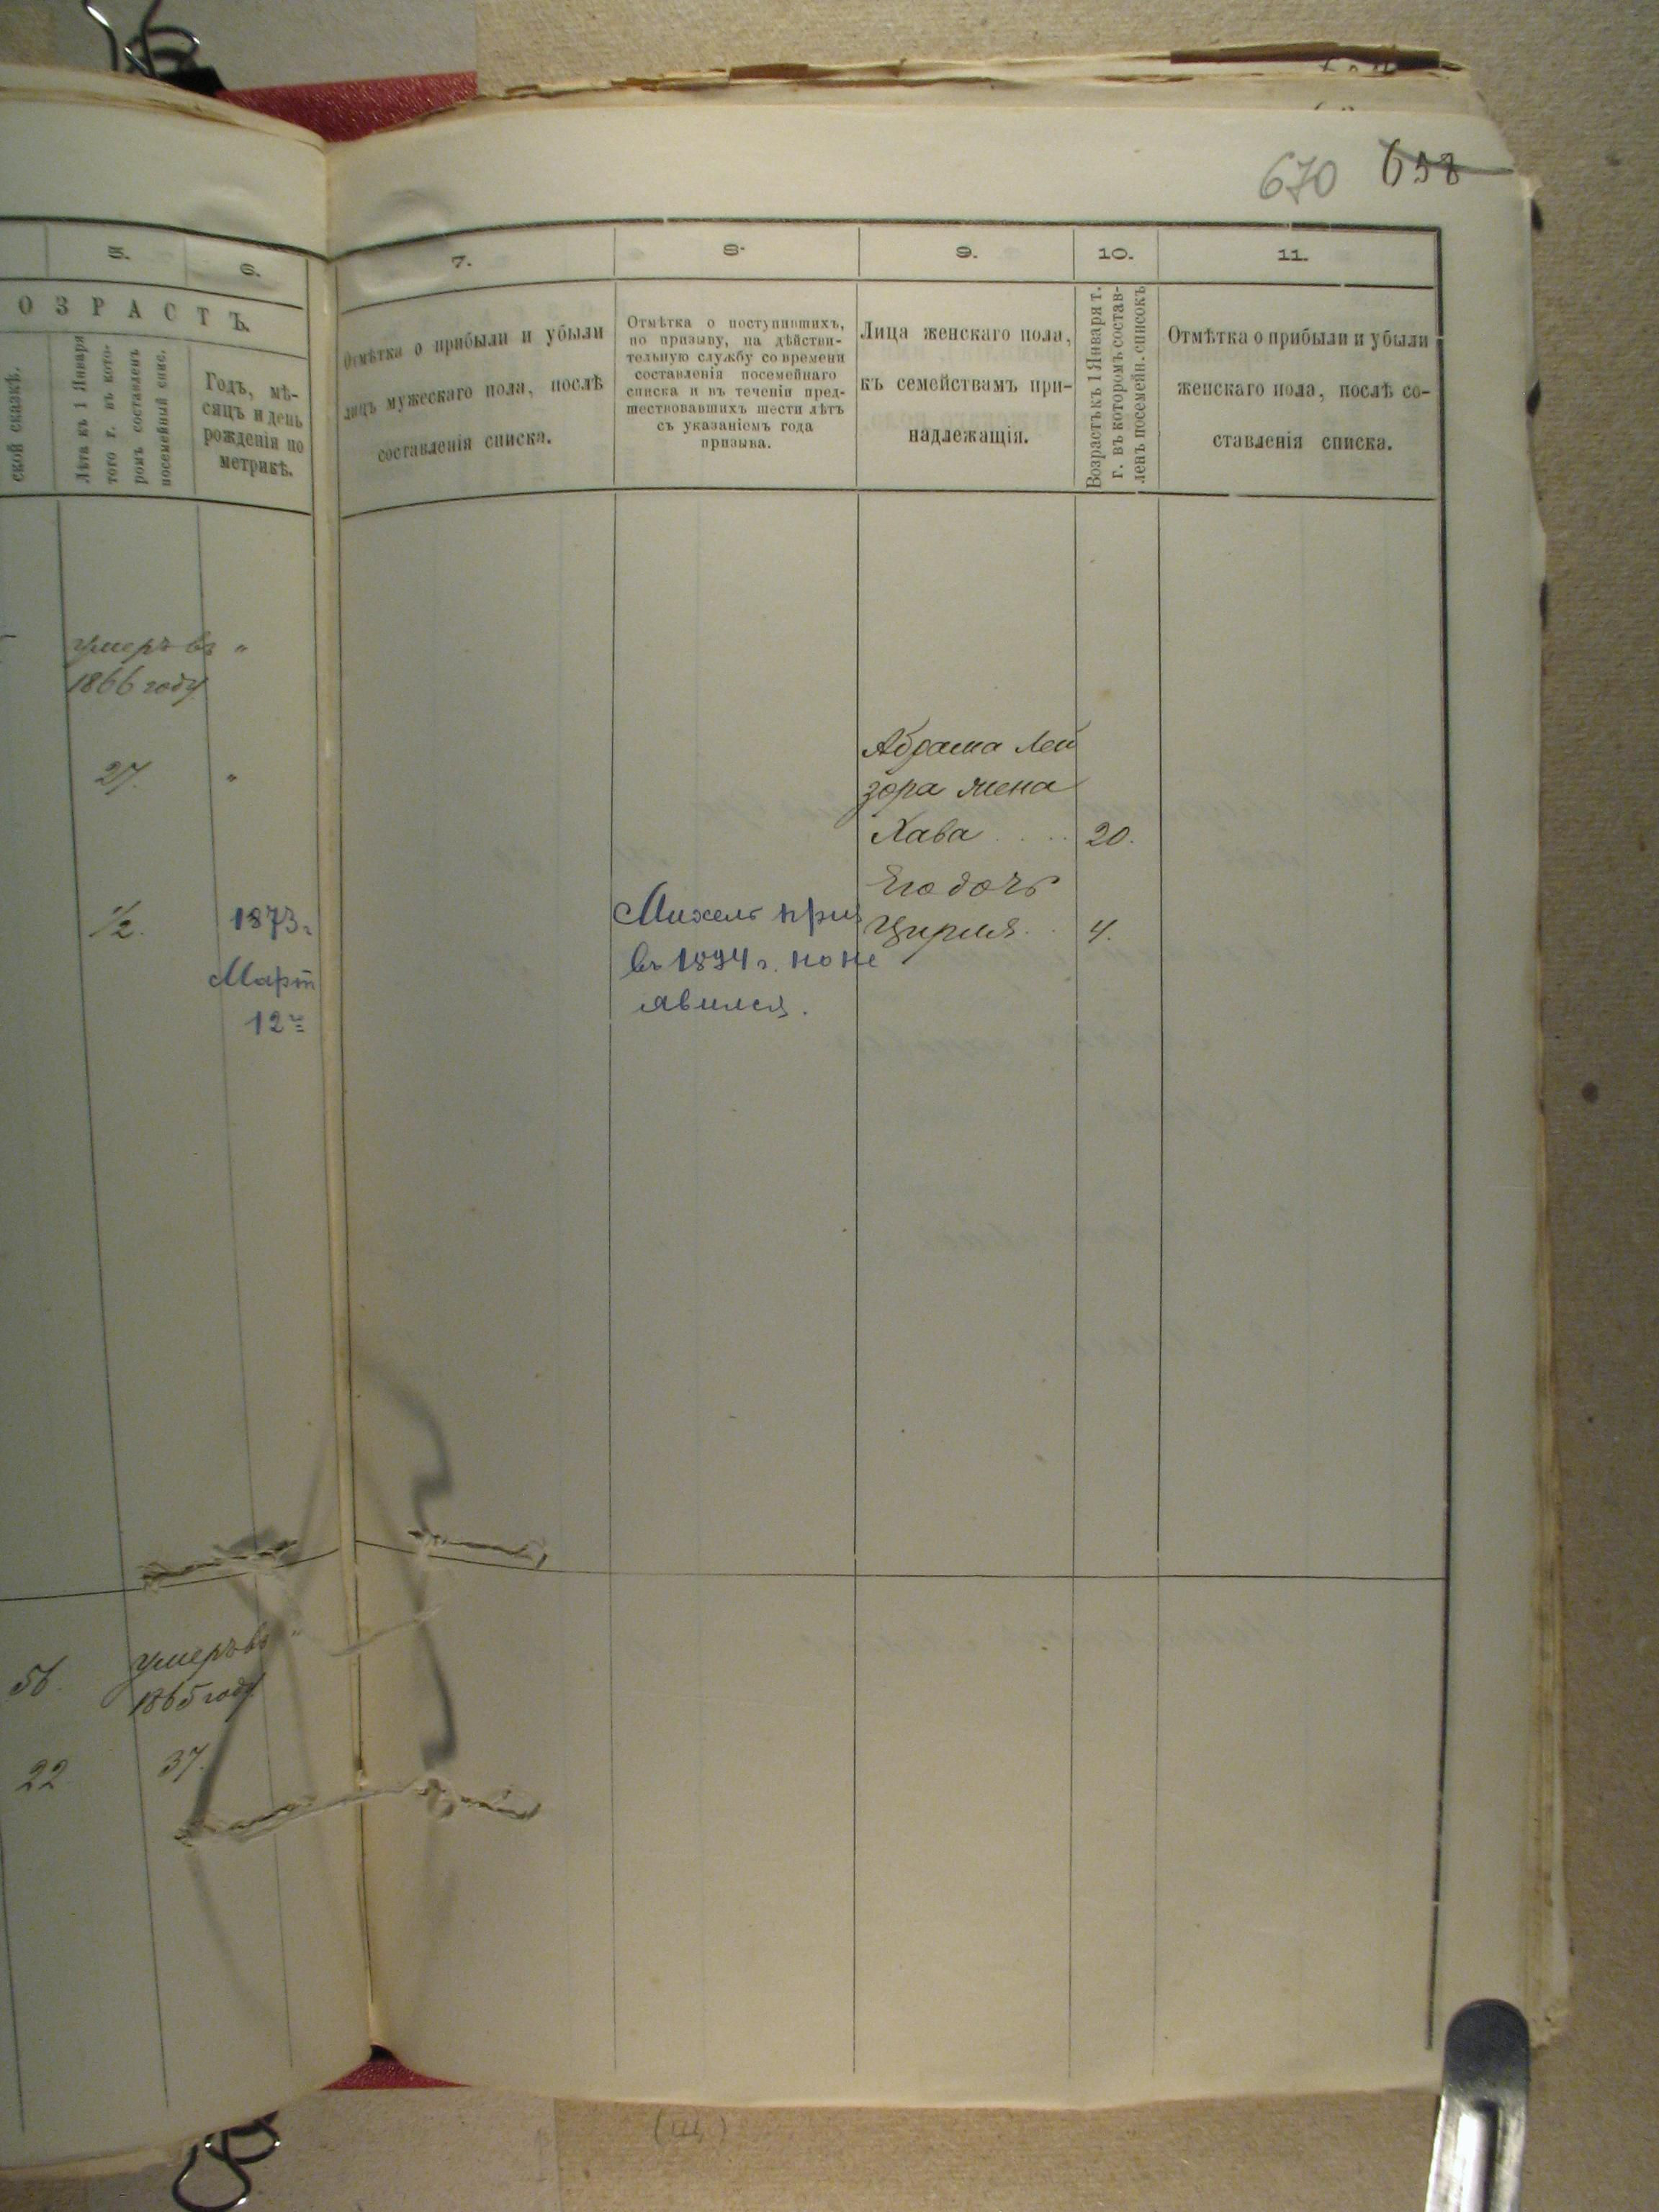 670 658
5.
6.
7.
8.
9.
10.
11.
ОЗРАСТЪ.
ской сказкѣ.
Лѣта къ 1 Января
того г. въ кото-
ромъ составленъ
посемейный спис.
Годъ, мѣ-
сяцъ и день
рожденія по
метрикѣ.
Отмѣтка о прибыли и убыли
лицъ мужескаго пола, послѣ
составленія списка.
Отмѣтка о поступившихъ,
по призыву, на дѣйстви-
тельную службу со времени
составленія посемейнаго
списка и въ теченіи пред-
шествовавшихъ шести лѣтъ
съ указаніемъ года
призыва.
Лица женскаго пола,
къ семействамъ при-
надлежащія.
Возрастъ къ 1 Января т.
г. въ которомъ состав-
ленъ посемейн. списокъ
Отмѣтка о прибыли и убыли
женскаго пола, послѣ со-
ставленія списка.
умеръ въ "
1866 году
27. "
Абрама Лей
зора жена
Хава 20.
Его дочь
Цирля 4.
1/2. 1873 г.
Март
12го
Михель приз
въ 1894 г. но не
явился.
56. умеръ въ "
1865 году
22 37.